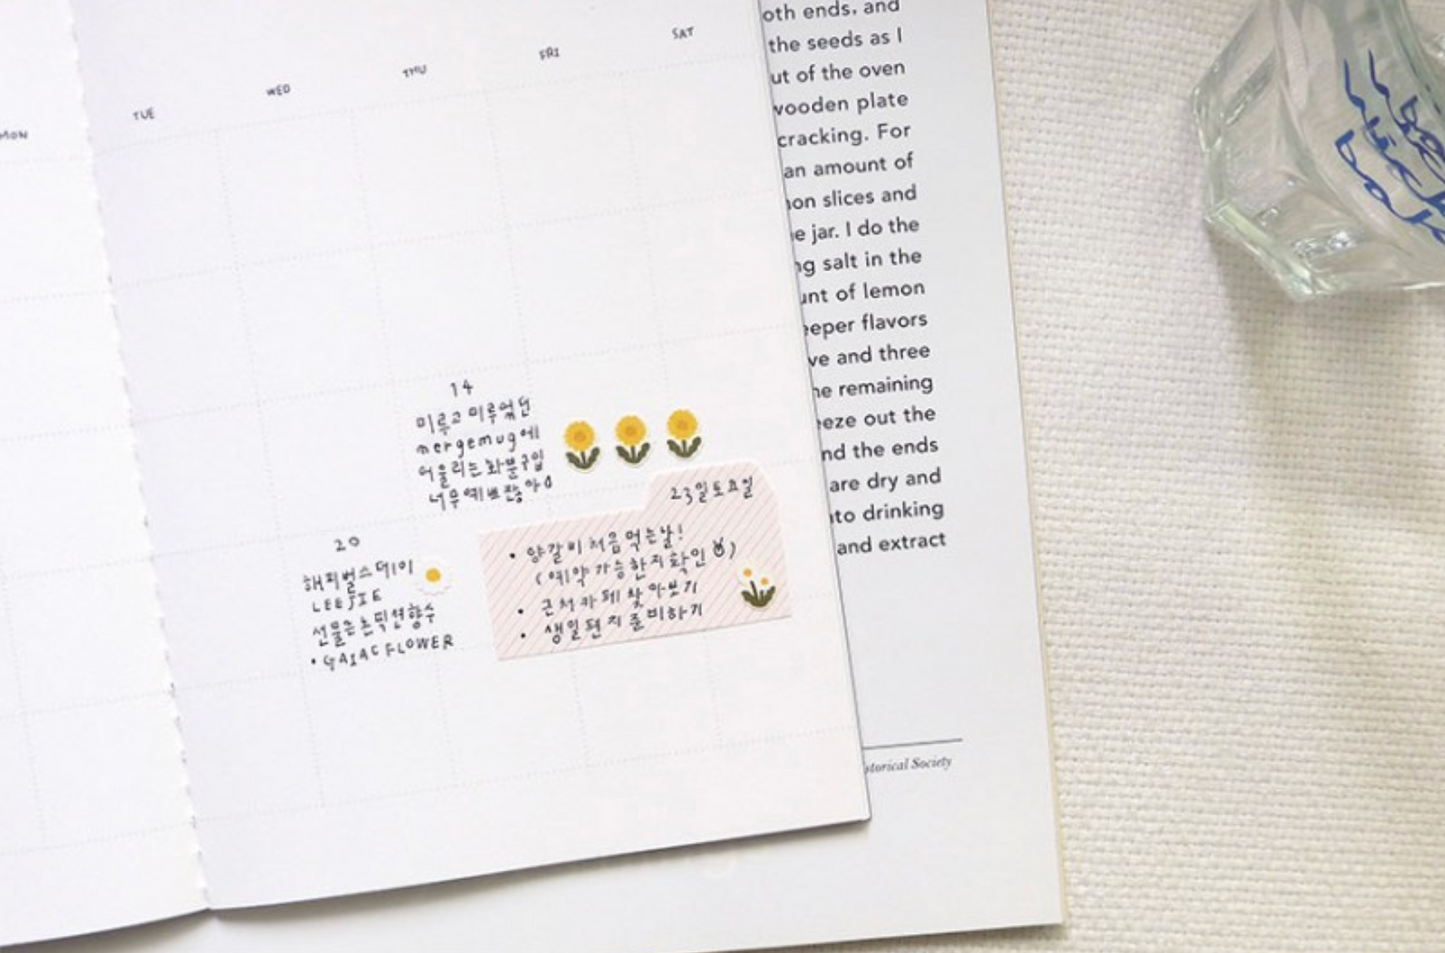 MON
TUE
WED
THU
FRI
SAT
14
미루고 미루었던
mergemug에
어울리는 화분구입
너무 예쁘잖아
20
해피벌스데이
LEEJIE
선물은논픽션향수
• GAIAC FLOWER
23일토요일
• 양갈비 처음 먹는날!
(예약 가능한지 확인)
• 근처 카페 찾아보기
• 생일편지 준비하기
oth ends, and
the seeds as I
ut of the oven
wooden plate
cracking. For
an amount of
on slices and
e jar. I do the
ng salt in the
unt of lemon
eeper flavors
ve and three
he remaining
eeze out the
nd the ends
are dry and
to drinking
and extract
storical Society